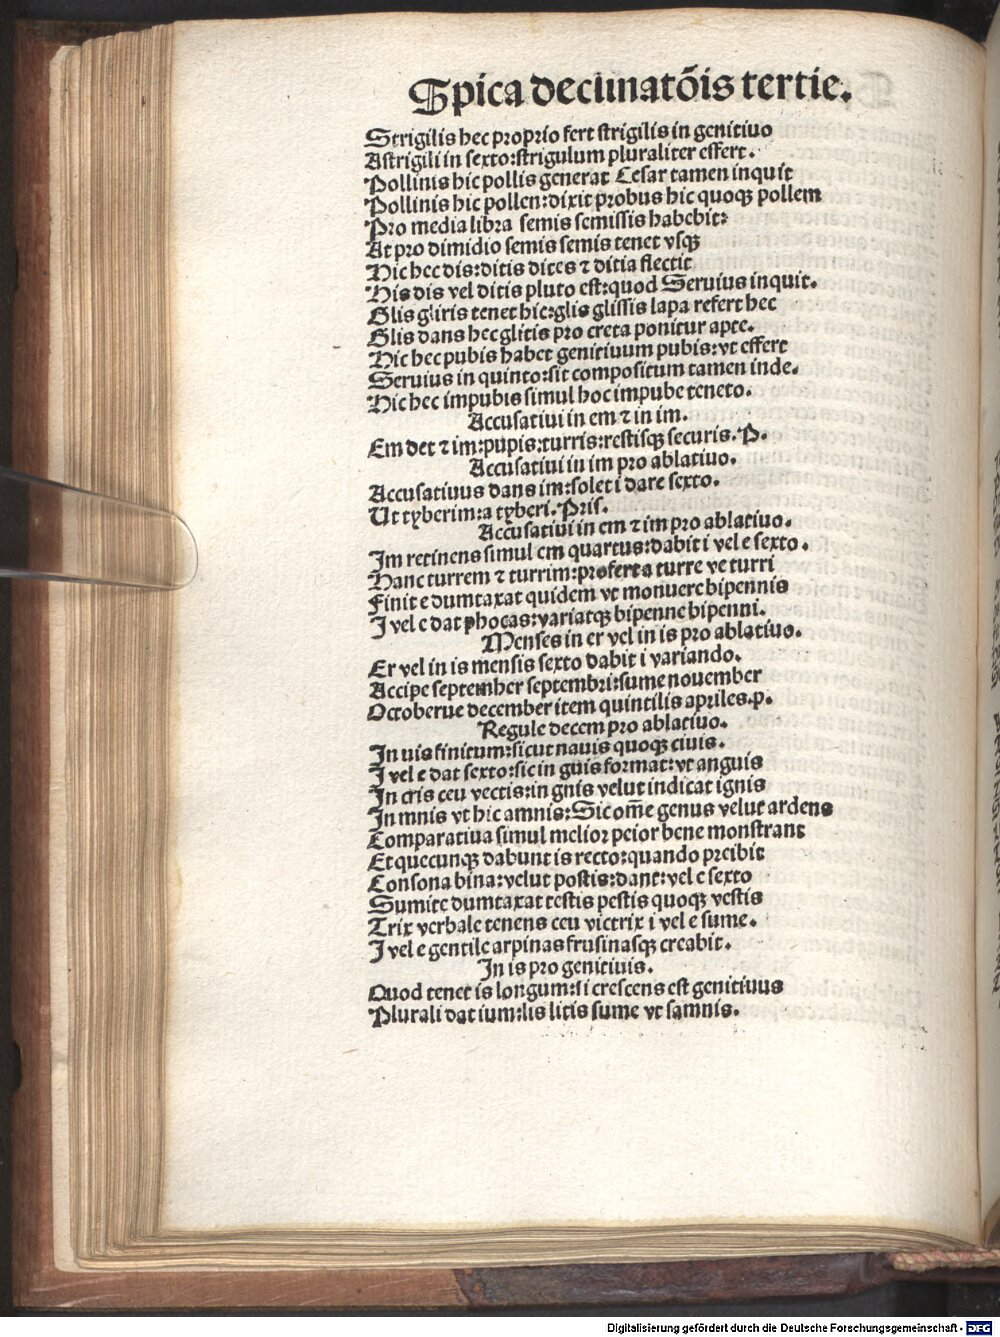 Spica declinatōis tertie.
Strigilis hec proprio fert strigilis in genitiuo
Astrigili in sexto: strigulum pluraliter effert.
Pollinis hic pollis generat Cesar tamen inquit
Pollinis hic pollen: dixit probus hic quoqꝫ pollem
Pro media libra semis semissis habebit:
At pro dimidio semis semis tenet vsqꝫ
Hic hec dis: ditis dites ⁊ ditia flectit
His dis vel ditis pluto est: quod Seruius inquit.
Glis gliris tenet hic: glis glissis lapa refert hec
Glis dans hec glitis pro creta ponitur apte.
Hic hec pubis habet genitiuum pubis: vt effert
Seruius in quinto: sit compositum tamen inde.
Hic hec impubis simul hoc impube teneto.
Accusatiui in em ⁊ in im.
Em det ⁊ im: pupis: turris: restisqꝫ securis. P.
Accusatiui in im pro ablatiuo.
Accusatiuus dans im: solet i dare sexto.
Ut tyberim: a tyberi. Pris.
Accusatiui in em ⁊ im pro ablatiuo.
Im retinens simul em quartus: dabit i vel e sexto.
Hanc turrem ⁊ turrim: profert a turre ve turri
Finit e dumtaxat quidem vt monuere bipennis
I vel e dat phocas: variatqꝫ bipenne bipenni.
Menses in er vel in is pro ablatiuo.
Er vel in is mensis sexto dabit i variando.
Accipe september septembri: sume nouember
Octoberue december item quintilis apriles. p.
Regule decem pro ablatiuo.
In uis finitum: sicut nauis quoqꝫ ciuis.
I vel e dat sexto: sic in guis format: vt anguis
In ctis ceu vectis: in gnis velut indicat ignis
In mnis vt hic amnis: Sic om̄e genus velut ardens
Comparatiua simul melior peior bene monstrant
Et quecunqꝫ dabunt is recto: quando preibit
Consona bina: velut postis: dant: vel e sexto
Sumite dumtaxat testis pestis quoqꝫ vestis
Trix verbale tenens ceu victrix i vel e sume.
I vel e gentile arpinas frusinasqꝫ creabit.
In is pro genitiuis.
Quod tenet is longum: si crescens est genitiuus
Plurali dat ium: lis litis sume vt samnis.
Digitalisierung gefördert durch die Deutsche Forschungsgemeinschaft - DFG